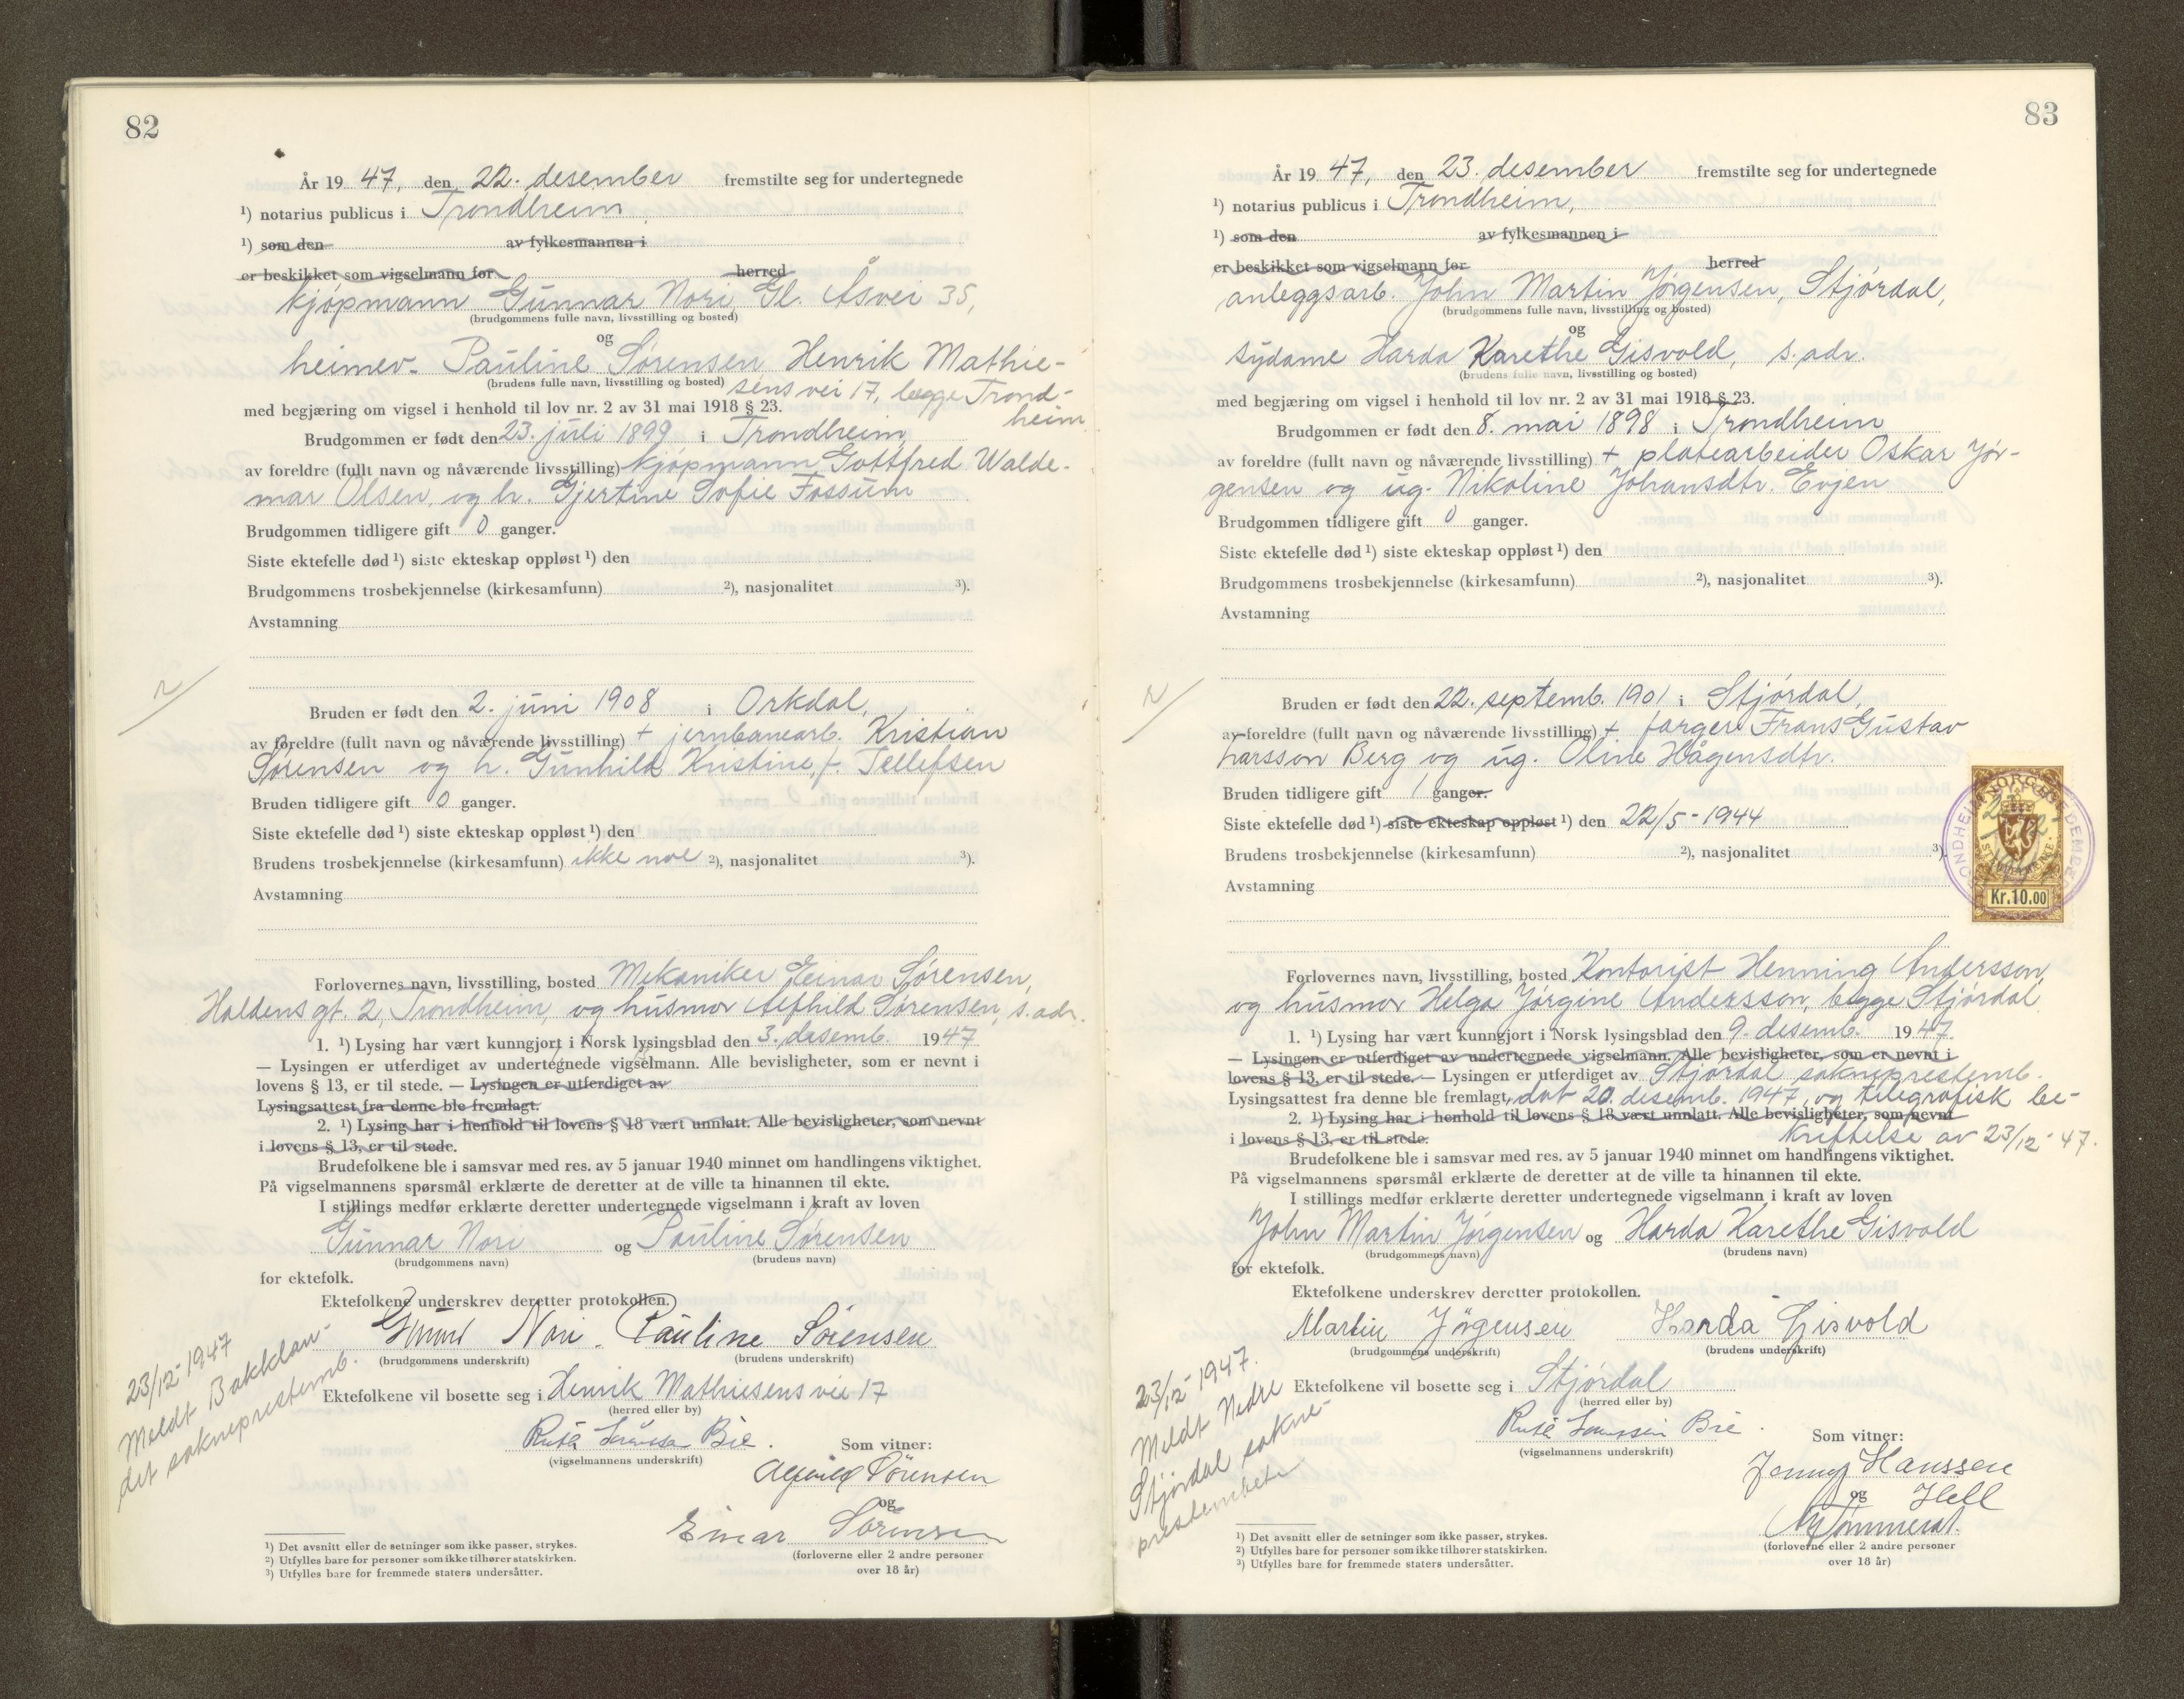 82
År 19 47, den 22. desember fremstilte seg for undertegnede
¹) notarius publicus i Trondheim
¹) som den av fylkesmannen i
er beskikket som vigselmann for herred
kjøpmann Gunnar Nori Gl. Åsvei 35,
(brudgommens fulle navn, livsstilling og bosted)
og
heimev. Pauline Sørensen, Henrik Mathie-
(brudens fulle navn, livsstilling og bosted) sens vei 17, begge Trond-
heim
med begjæring om vigsel i henhold til lov nr. 2 av 31 mai 1918 § 23.
Brudgommen er født den 23. juli 1899 i Trondheim
av foreldre (fullt navn og nåværende livsstilling) kjøpmann Gottfred Walde-
mar Olsen, og h. Gjertine Sofie Fossum
Brudgommen tidligere gift 0 ganger.
Siste ektefelle død ¹) siste ekteskap oppløst ¹) den
Brudgommens trosbekjennelse (kirkesamfunn) ²), nasjonalitet ³).
Avstamning
Bruden er født den 2. juni 1908 i Orkdal,
av foreldre (fullt navn og nåværende livsstilling) + jernbanearb. Kristian
Sørensen og h. Gunhild Kristine, f. Tellefsen
Bruden tidligere gift 0 ganger.
Siste ektefelle død ¹) siste ekteskap oppløst ¹) den
Brudens trosbekjennelse (kirkesamfunn) ikke noe ²), nasjonalitet ³).
Avstamning
Forlovernes navn, livsstilling, bosted Mekaniker Einar Sørensen,
Haldens gt. 2, Trondheim, og husmor Alfhild Sørensen, s. adr.
1. ¹) Lysing har vært kunngjort i Norsk lysingsblad den 3. desemb. 1947
— Lysingen er utferdiget av undertegnede vigselmann. Alle bevisligheter, som er nevnt i
lovens § 13, er til stede. — Lysingen er utferdiget av
Lysingsattest fra denne ble fremlagt.
2. ¹) Lysing har i henhold til lovens § 18 vært unnlatt. Alle bevisligheter, som nevnt
i lovens § 13, er til stede.
Brudefolkene ble i samsvar med res. av 5 januar 1940 minnet om handlingens viktighet.
På vigselmannens spørsmål erklærte de deretter at de ville ta hinannen til ekte.
I stillings medfør erklærte deretter undertegnede vigselmann i kraft av loven
Gunnar Nori og Pauline Sørensen
(brudgommens navn) (brudens navn)
for ektefolk.
Ektefolkene underskrev deretter protokollen.
Gunnar Nori. Pauline Sørensen
(brudgommens underskrift) (brudens underskrift)
23/12-1947
Meldt Bakklan-
det sokneprestemb.
Ektefolkene vil bosette seg i Henrik Mathiesens vei 17
(herred eller by)
Ruth Bie.
(vigselmannens underskrift)
Som vitner:
Alfhild Sørensen
og
Einar Sørensen
(forloverne eller 2 andre personer
over 18 år)
¹) Det avsnitt eller de setninger som ikke passer, strykes.
²) Utfylles bare for personer som ikke tilhører statskirken.
³) Utfylles bare for fremmede staters undersåtter.
83
År 19 47, den 23. desember fremstilte seg for undertegnede
¹) notarius publicus i Trondheim,
¹) som den av fylkesmannen i
er beskikket som vigselmann for herred
anleggsarb. John Martin Jørgensen, Stjørdal,
(brudgommens fulle navn, livsstilling og bosted)
og
sydame Harda Karethe Gisvold, s. adr.
(brudens fulle navn, livsstilling og bosted)
med begjæring om vigsel i henhold til lov nr. 2 av 31 mai 1918 § 23.
Brudgommen er født den 8. mai 1898 i Trondheim
av foreldre (fullt navn og nåværende livsstilling) + platearbeider Oskar Jør-
gensen og ug. Nikoline Johansdtr. Evjen
Brudgommen tidligere gift 0 ganger.
Siste ektefelle død ¹) siste ekteskap oppløst ¹) den
Brudgommens trosbekjennelse (kirkesamfunn) ²), nasjonalitet ³).
Avstamning
Bruden er født den 22. septemb. 1901 i Stjørdal,
av foreldre (fullt navn og nåværende livsstilling) + farger Frans Gustav
Larsson Berg og ug. Oline Hågensdtr.
Bruden tidligere gift 1 ganger.
Siste ektefelle død ¹) siste ekteskap oppløst ¹) den 22/5-1944
Brudens trosbekjennelse (kirkesamfunn) ²), nasjonalitet ³).
Avstamning
NORGE
Kr.10.00
Forlovernes navn, livsstilling, bosted Kontorist Henning Andersson,
og husmor Helga Jørgine Andersson, begge Stjørdal
1. ¹) Lysing har vært kunngjort i Norsk lysingsblad den 9. desemb. 1947.
— Lysingen er utferdiget av undertegnede vigselmann. Alle bevisligheter, som er nevnt i
lovens § 13, er til stede. — Lysingen er utferdiget av Stjørdal sokneprestemb.
Lysingsattest fra denne ble fremlagt, dat 20. desemb. 1947, og telegrafisk be-
2. ¹) Lysing har i henhold til lovens § 18 vært unnlatt. Alle bevisligheter, som nevnt
i lovens § 13, er til stede. kreftelse av 23/12-47.
Brudefolkene ble i samsvar med res. av 5 januar 1940 minnet om handlingens viktighet.
På vigselmannens spørsmål erklærte de deretter at de ville ta hinannen til ekte.
I stillings medfør erklærte deretter undertegnede vigselmann i kraft av loven
John Martin Jørgensen og Harda Karethe Gisvold
(brudgommens navn) (brudens navn)
for ektefolk.
Ektefolkene underskrev deretter protokollen.
Martin Jørgensen Harda Gisvold
(brudgommens underskrift) (brudens underskrift)
23/12-1947.
Meldt Nedre
Stjørdal sokne-
prestembete
Ektefolkene vil bosette seg i Stjørdal
(herred eller by)
Ruth Bie.
(vigselmannens underskrift)
Som vitner:
Jenny Hanssen
og Hell
(forloverne eller 2 andre personer
over 18 år)
¹) Det avsnitt eller de setninger som ikke passer, strykes.
²) Utfylles bare for personer som ikke tilhører statskirken.
³) Utfylles bare for fremmede staters undersåtter.